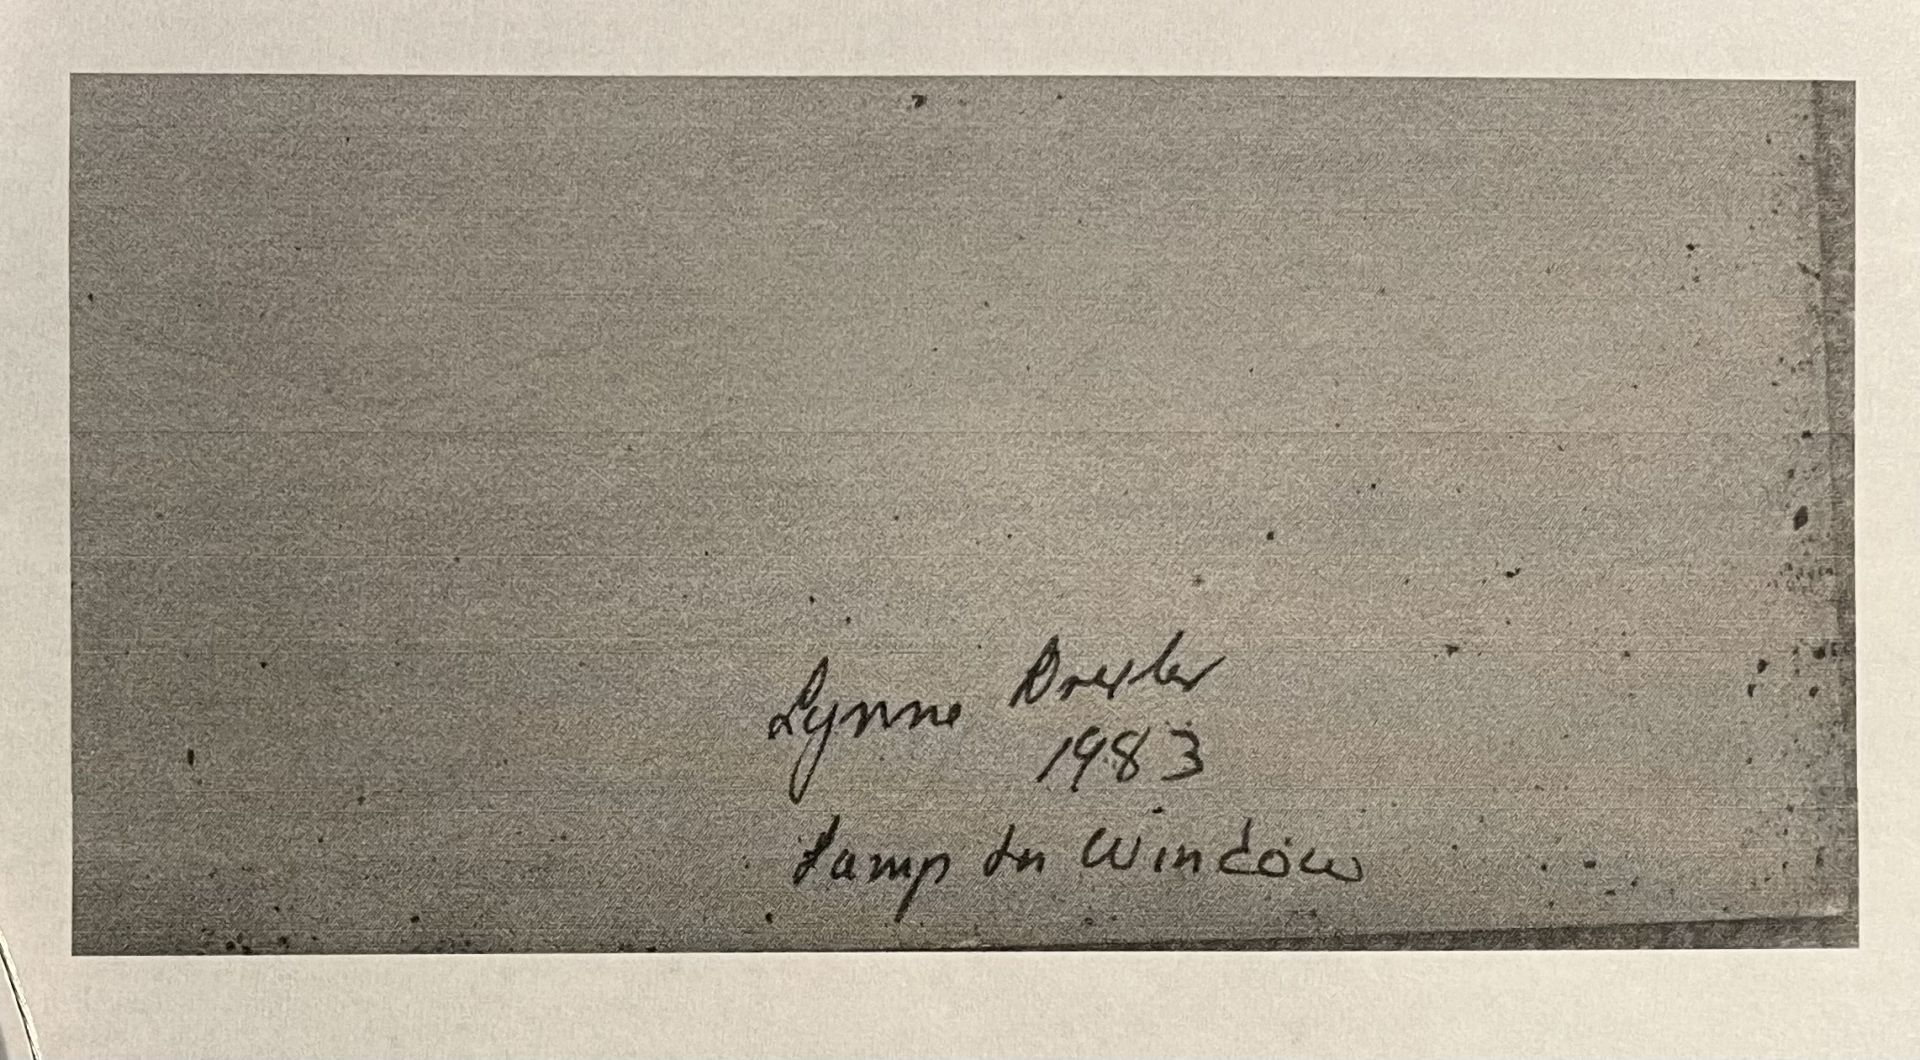 Lynne Drexler
1983
Lamp In Window